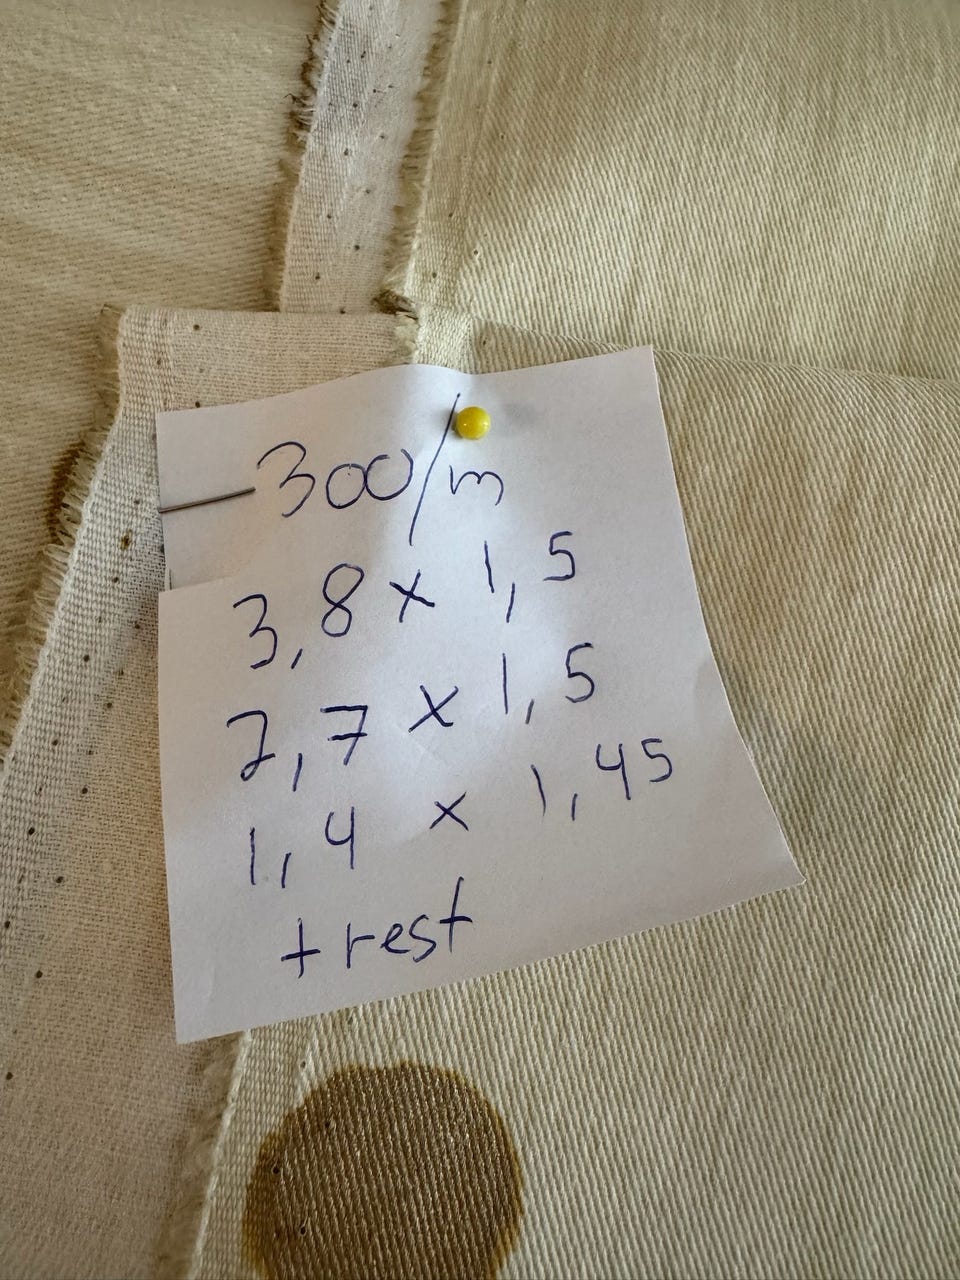 300/m
3,8 x 1,5
2,7 x 1,5
1,4 x 1,45
+ rest